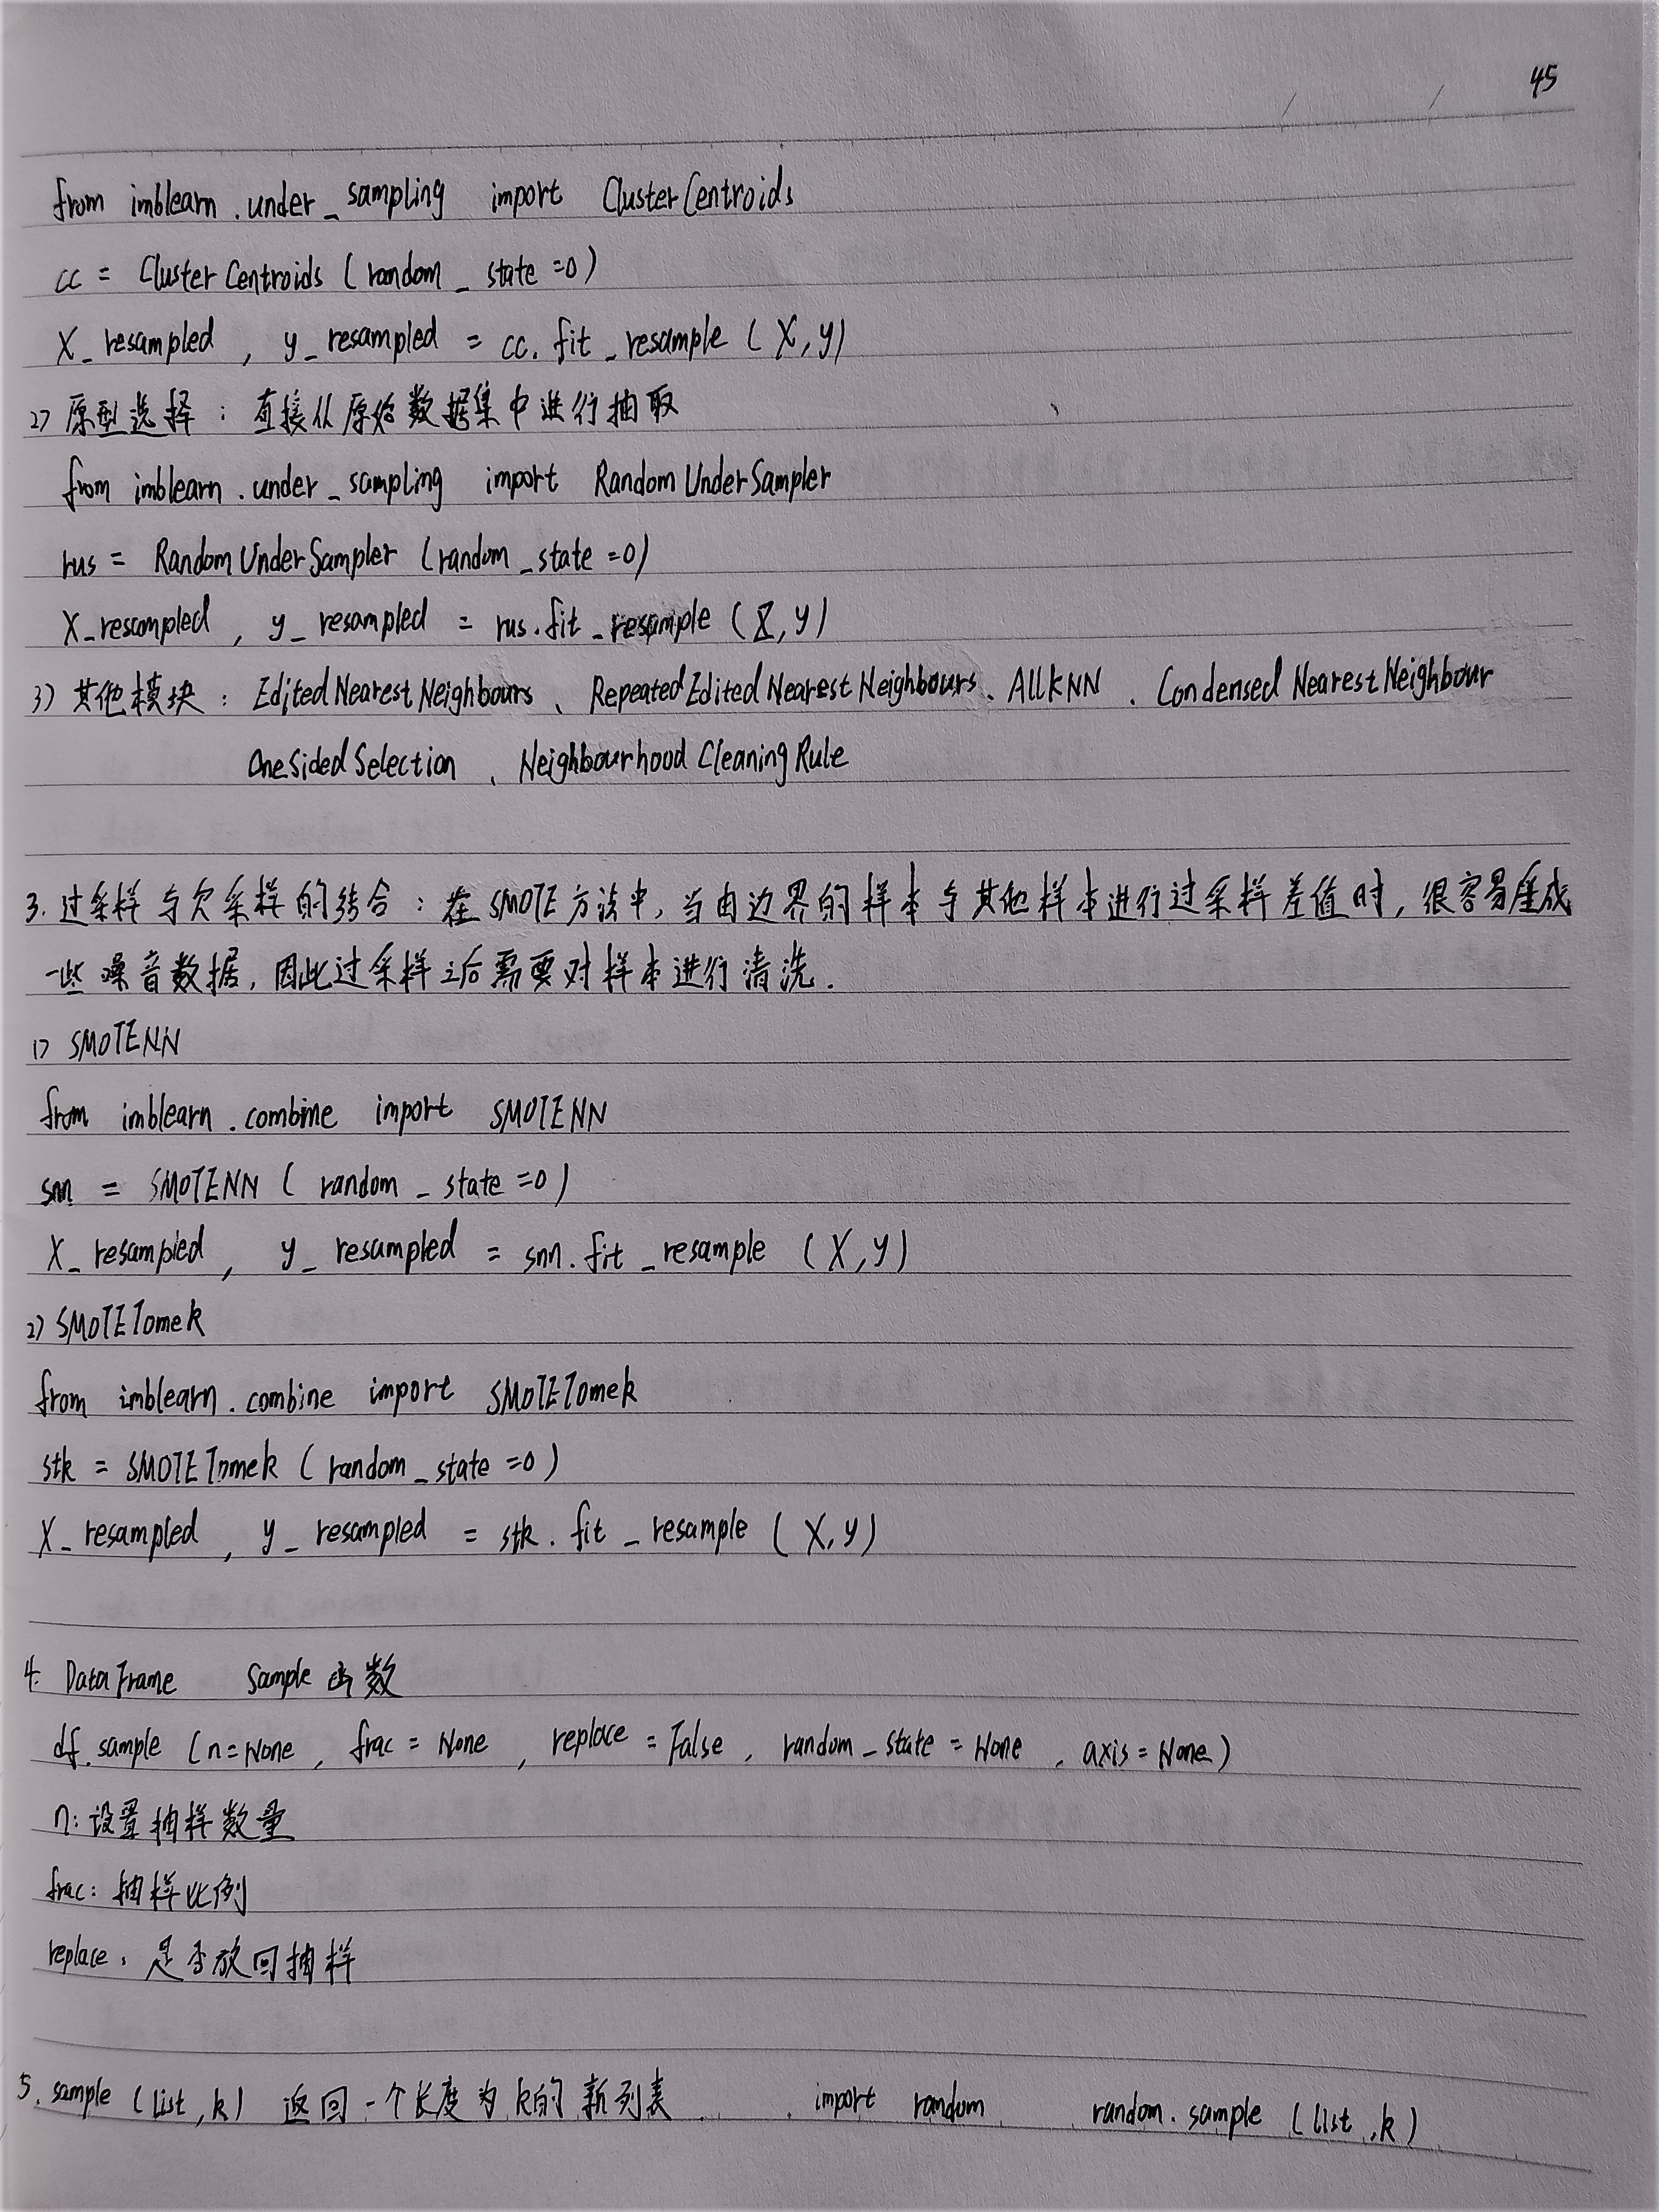 45
from imblearn.under_sampling import ClusterCentroids
cc = ClusterCentroids (random_state=0)
X_resampled , y_resampled = cc.fit_resample (X,y)
2) 原型选择：直接从原始数据集中进行抽取
from imblearn.under_sampling import RandomUnderSampler
rus = RandomUnderSampler (random_state=0)
X_resampled , y_resampled = rus.fit_resample (X,y)
3) 其他模块：EditedNearestNeighbours、RepeatedEditedNearestNeighbours、AllKNN、CondensedNearestNeighbour
OneSidedSelection、NeighbourhoodCleaningRule
3. 过采样与欠采样的结合：在SMOTE方法中，当由边界的样本与其他样本进行过采样差值时，很容易生成
一些噪音数据，因此过采样之后需要对样本进行清洗.
1) SMOTENN
from imblearn.combine import SMOTENN
snn = SMOTENN ( random_state=0)
X_resampled , y_resampled = snn.fit_resample (X,y)
2) SMOTETomek
from imblearn.combine import SMOTETomek
stk = SMOTETomek ( random_state=0 )
X_resampled , y_resampled = stk.fit_resample ( X,y)
4. DataFrame Sample函数
df.sample (n=None , frac=None , replace=False , random_state=None , axis=None)
n：设置抽样数量
frac：抽样比例
replace：是否放回抽样
5. sample (list,k) 返回一个长度为k的新列表 import random random.sample (list,k)